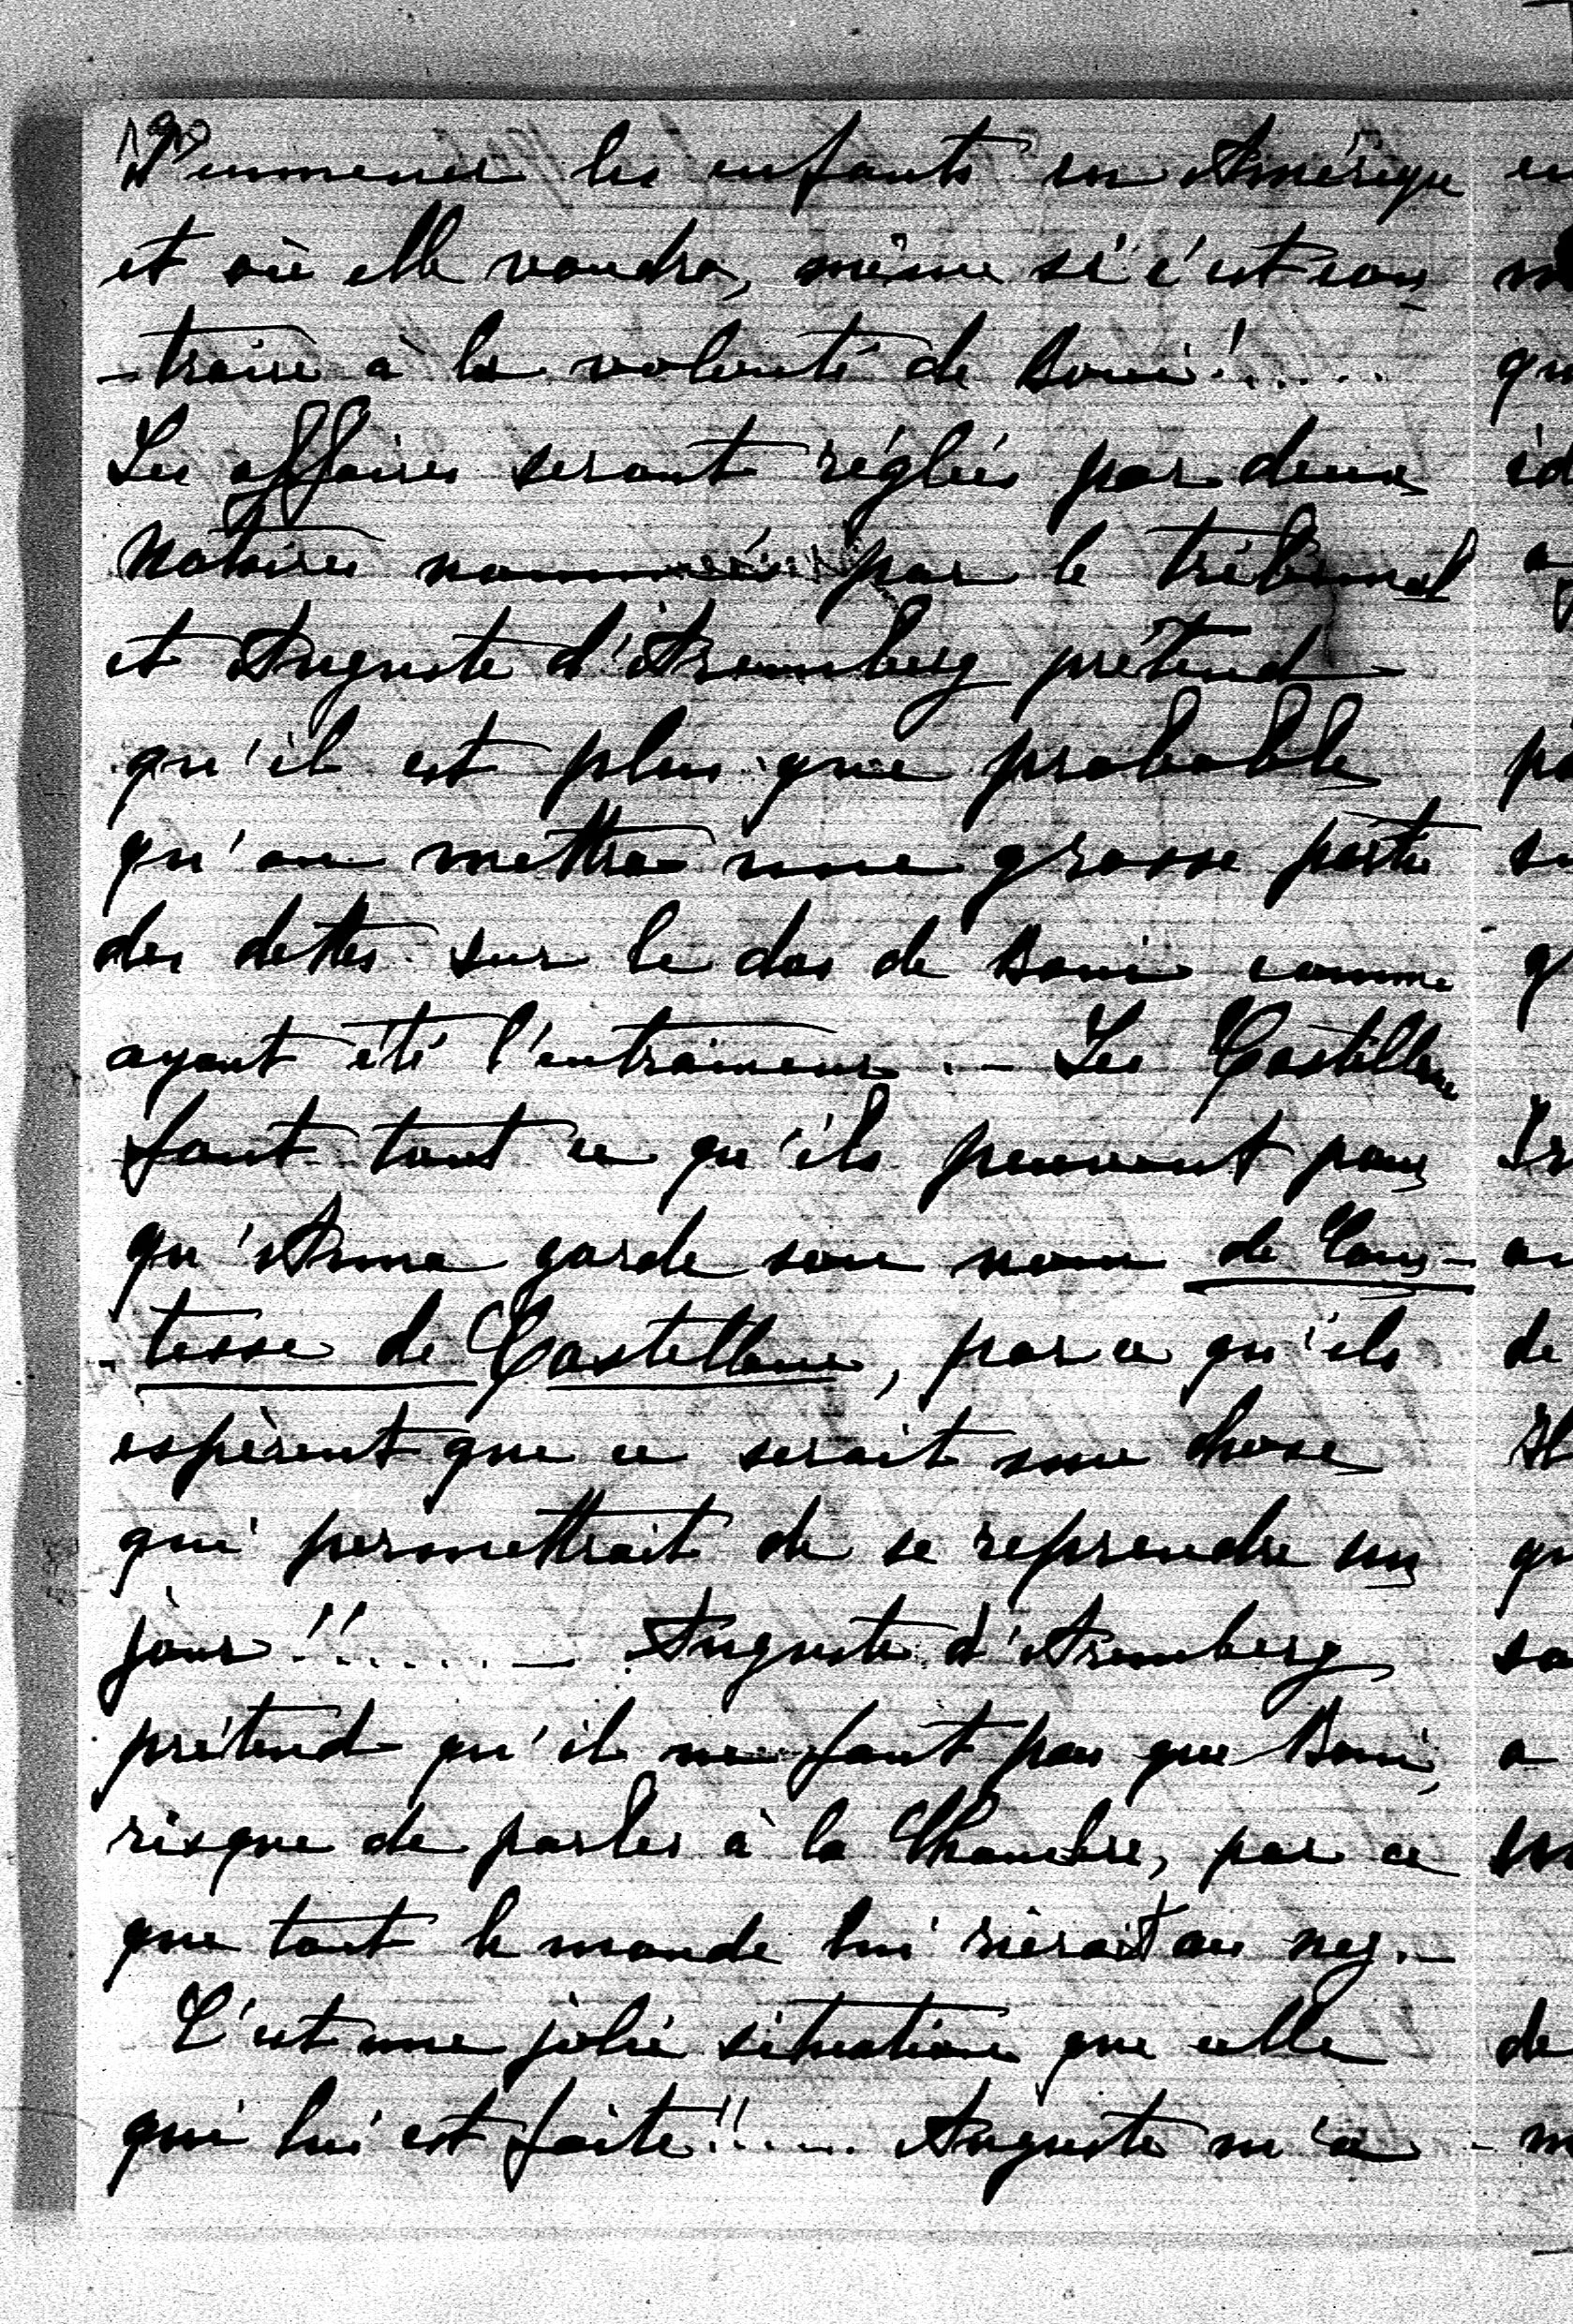 d'emmener les enfants en Amérique
et où elle voudra, même si c'est con
-traire à la volonté de Boni !.....
Les affaires seront réglées par deux
Notaires nommés par le tribunal
et Auguste d'Aremberg prétend
qu'il est plus que probable
qu'on mettra une grosse partie
des dettes sur le dos de Boni comme
ayant été l'entraineur. - Les Castellane
font tout ce qu'ils peuvent pour
qu'Anna garde son nom de Com-
-tesse de Castellane, par ce qu'ils
espèrent que ce serait une chose
qui permettrait de se reprendre un
jour !!...... - Auguste d'Aremberg
prétend qu'il ne faut pas que Boni,
risque de parler à la Chambre, par ce
que tout le monde lui rierait au nez. -
C'est une jolie situation que celle
qui lui est faite !!..... Auguste m'a